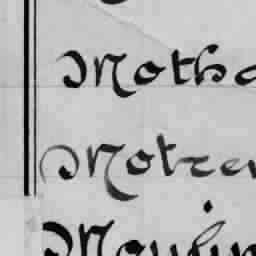 Motha
Motrer
Moulin